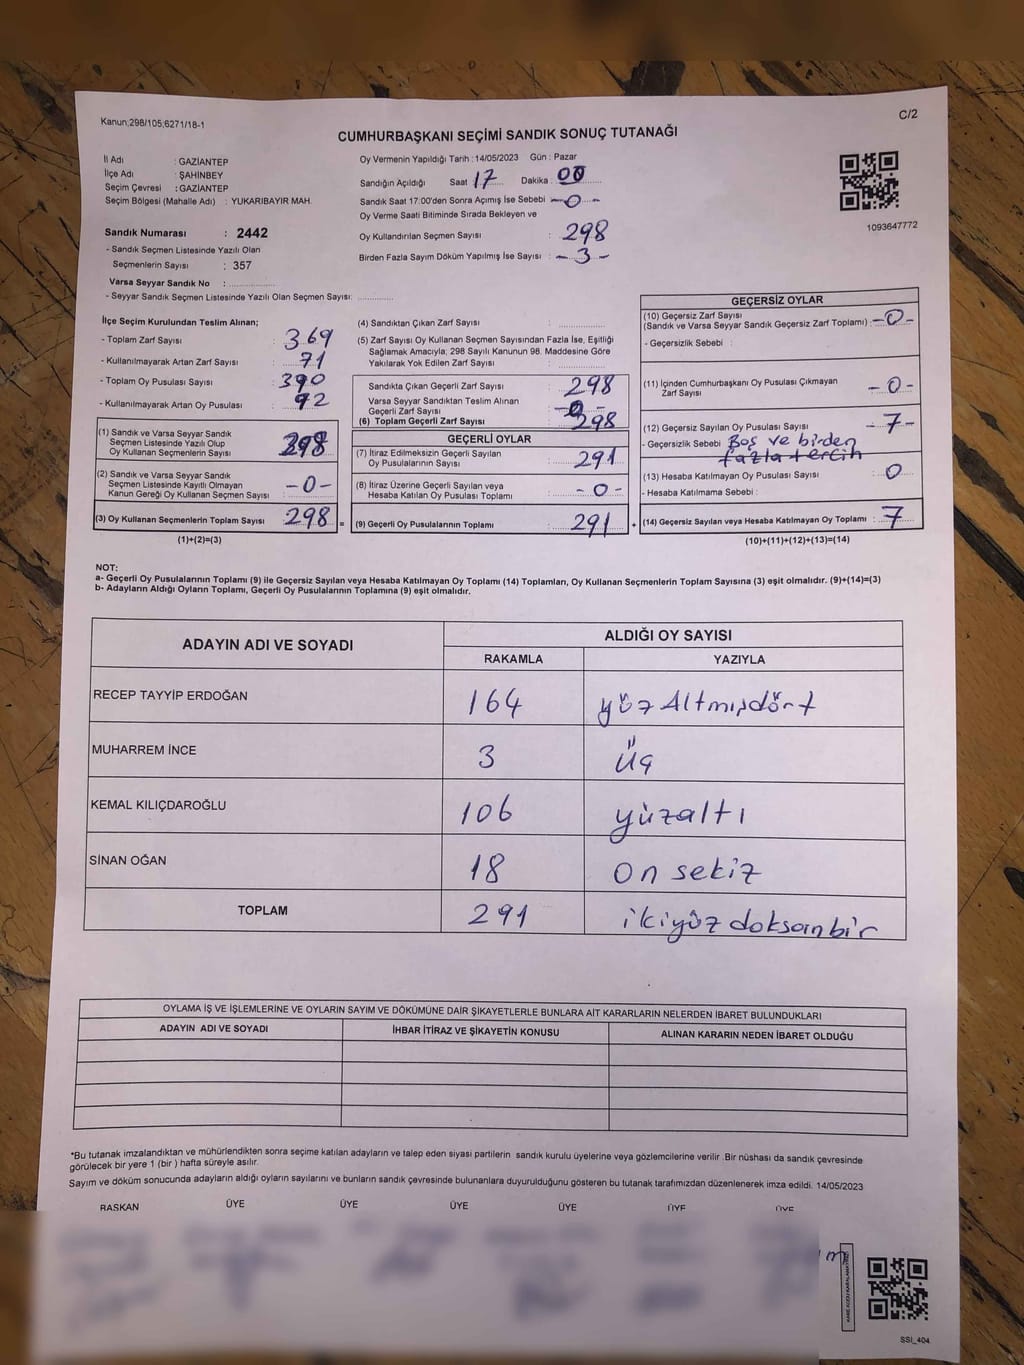 Kanun;298/105;6271/18-1
C/2
CUMHURBAŞKANI SEÇİMİ SANDIK SONUÇ TUTANAĞI
İl Adı : GAZİANTEP
İlçe Adı : ŞAHİNBEY
Seçim Çevresi : GAZİANTEP
Seçim Bölgesi (Mahalle Adı) : YUKARIBAYIR MAH.
Sandık Numarası : 2442
- Sandık Seçmen Listesinde Yazılı Olan
Seçmenlerin Sayısı : 357
Varsa Seyyar Sandık No :
- Seyyar Sandık Seçmen Listesinde Yazılı Olan Seçmen Sayısı:
Oy Vermenin Yapıldığı Tarih : 14/05/2023 Gün : Pazar
Sandığın Açıldığı Saat 17 Dakika : 00
Sandık Saat 17:00'den Sonra Açımış İse Sebebi -0-
Oy Verme Saati Bitiminde Sırada Bekleyen ve
Oy Kullandırılan Seçmen Sayısı : 298
Birden Fazla Sayım Döküm Yapılmış İse Sayısı : -3-
1093647772
İlçe Seçim Kurulundan Teslim Alınan;
- Toplam Zarf Sayısı : 369
- Kullanılmayarak Artan Zarf Sayısı : 71
- Toplam Oy Pusulası Sayısı : 390
- Kullanılmayarak Artan Oy Pusulası : 92
(1) Sandık ve Varsa Seyyar Sandık
Seçmen Listesinde Yazılı Olup
Oy Kullanan Seçmenlerin Sayısı : 298
(2) Sandık ve Varsa Seyyar Sandık
Seçmen Listesinde Kayıtlı Olmayan
Kanun Gereği Oy Kullanan Seçmen Sayısı : -0-
(3) Oy Kullanan Seçmenlerin Toplam Sayısı : 298 =
(1)+(2)=(3)
(4) Sandıktan Çıkan Zarf Sayısı :
(5) Zarf Sayısı Oy Kullanan Seçmen Sayısından Fazla İse, Eşitliği
Sağlamak Amacıyla; 298 Sayılı Kanunun 98. Maddesine Göre
Yakılarak Yok Edilen Zarf Sayısı :
Sandıkta Çıkan Geçerli Zarf Sayısı : 298
Varsa Seyyar Sandıktan Teslim Alınan
Geçerli Zarf Sayısı : -0-
(6) Toplam Geçerli Zarf Sayısı : 298
GEÇERLİ OYLAR
(7) İtiraz Edilmeksizin Geçerli Sayılan
Oy Pusulalarının Sayısı : 291
(8) İtiraz Üzerine Geçerli Sayılan veya
Hesaba Katılan Oy Pusulası Toplamı : -0-
(9) Geçerli Oy Pusulalarının Toplamı : 291 +
GEÇERSİZ OYLAR
(10) Geçersiz Zarf Sayısı
(Sandık ve Varsa Seyyar Sandık Geçersiz Zarf Toplamı) : -0-
- Geçersizlik Sebebi :
(11) İçinden Cumhurbaşkanı Oy Pusulası Çıkmayan
Zarf Sayısı : -0-
(12) Geçersiz Sayılan Oy Pusulası Sayısı : -7-
- Geçersizlik Sebebi Boş ve birden
fazla tercih
(13) Hesaba Katılmayan Oy Pusulası Sayısı : 0
- Hesaba Katılmama Sebebi :
(14) Geçersiz Sayılan veya Hesaba Katılmayan Oy Toplamı : 7
(10)+(11)+(12)+(13)=(14)
NOT:
a- Geçerli Oy Pusulalarının Toplamı (9) ile Geçersiz Sayılan veya Hesaba Katılmayan Oy Toplamı (14) Toplamları, Oy Kullanan Seçmenlerin Toplam Sayısına (3) eşit olmalıdır. (9)+(14)=(3)
b- Adayların Aldığı Oyların Toplamı, Geçerli Oy Pusulalarının Toplamına (9) eşit olmalıdır.
ADAYIN ADI VE SOYADI
ALDIĞI OY SAYISI
RAKAMLA YAZIYLA
RECEP TAYYİP ERDOĞAN 164 yüz Altmışdört
MUHARREM İNCE 3 Üç
KEMAL KILIÇDAROĞLU 106 yüzaltı
SİNAN OĞAN 18 on sekiz
TOPLAM 291 ikiyüz doksanbir
OYLAMA İŞ VE İŞLEMLERİNE VE OYLARIN SAYIM VE DÖKÜMÜNE DAİR ŞİKAYETLERLE BUNLARA AİT KARARLARIN NELERDEN İBARET BULUNDUKLARI
ADAYIN ADI VE SOYADI İHBAR İTİRAZ VE ŞİKAYETİN KONUSU ALINAN KARARIN NEDEN İBARET OLDUĞU
*Bu tutanak imzalandıktan ve mühürlendikten sonra seçime katılan adayların ve talep eden siyasi partilerin sandık kurulu üyelerine veya gözlemcilerine verilir .Bir nüshası da sandık çevresinde
görülecek bir yere 1 (bir ) hafta süreyle asılır.
Sayım ve döküm sonucunda adayların aldığı oyların sayılarını ve bunların sandık çevresinde bulunanlara duyurulduğunu gösteren bu tutanak tarafımızdan düzenlenerek imza edildi. 14/05/2023
BAŞKAN ÜYE ÜYE ÜYE ÜYE ÜYE ÜYE
SSI_404